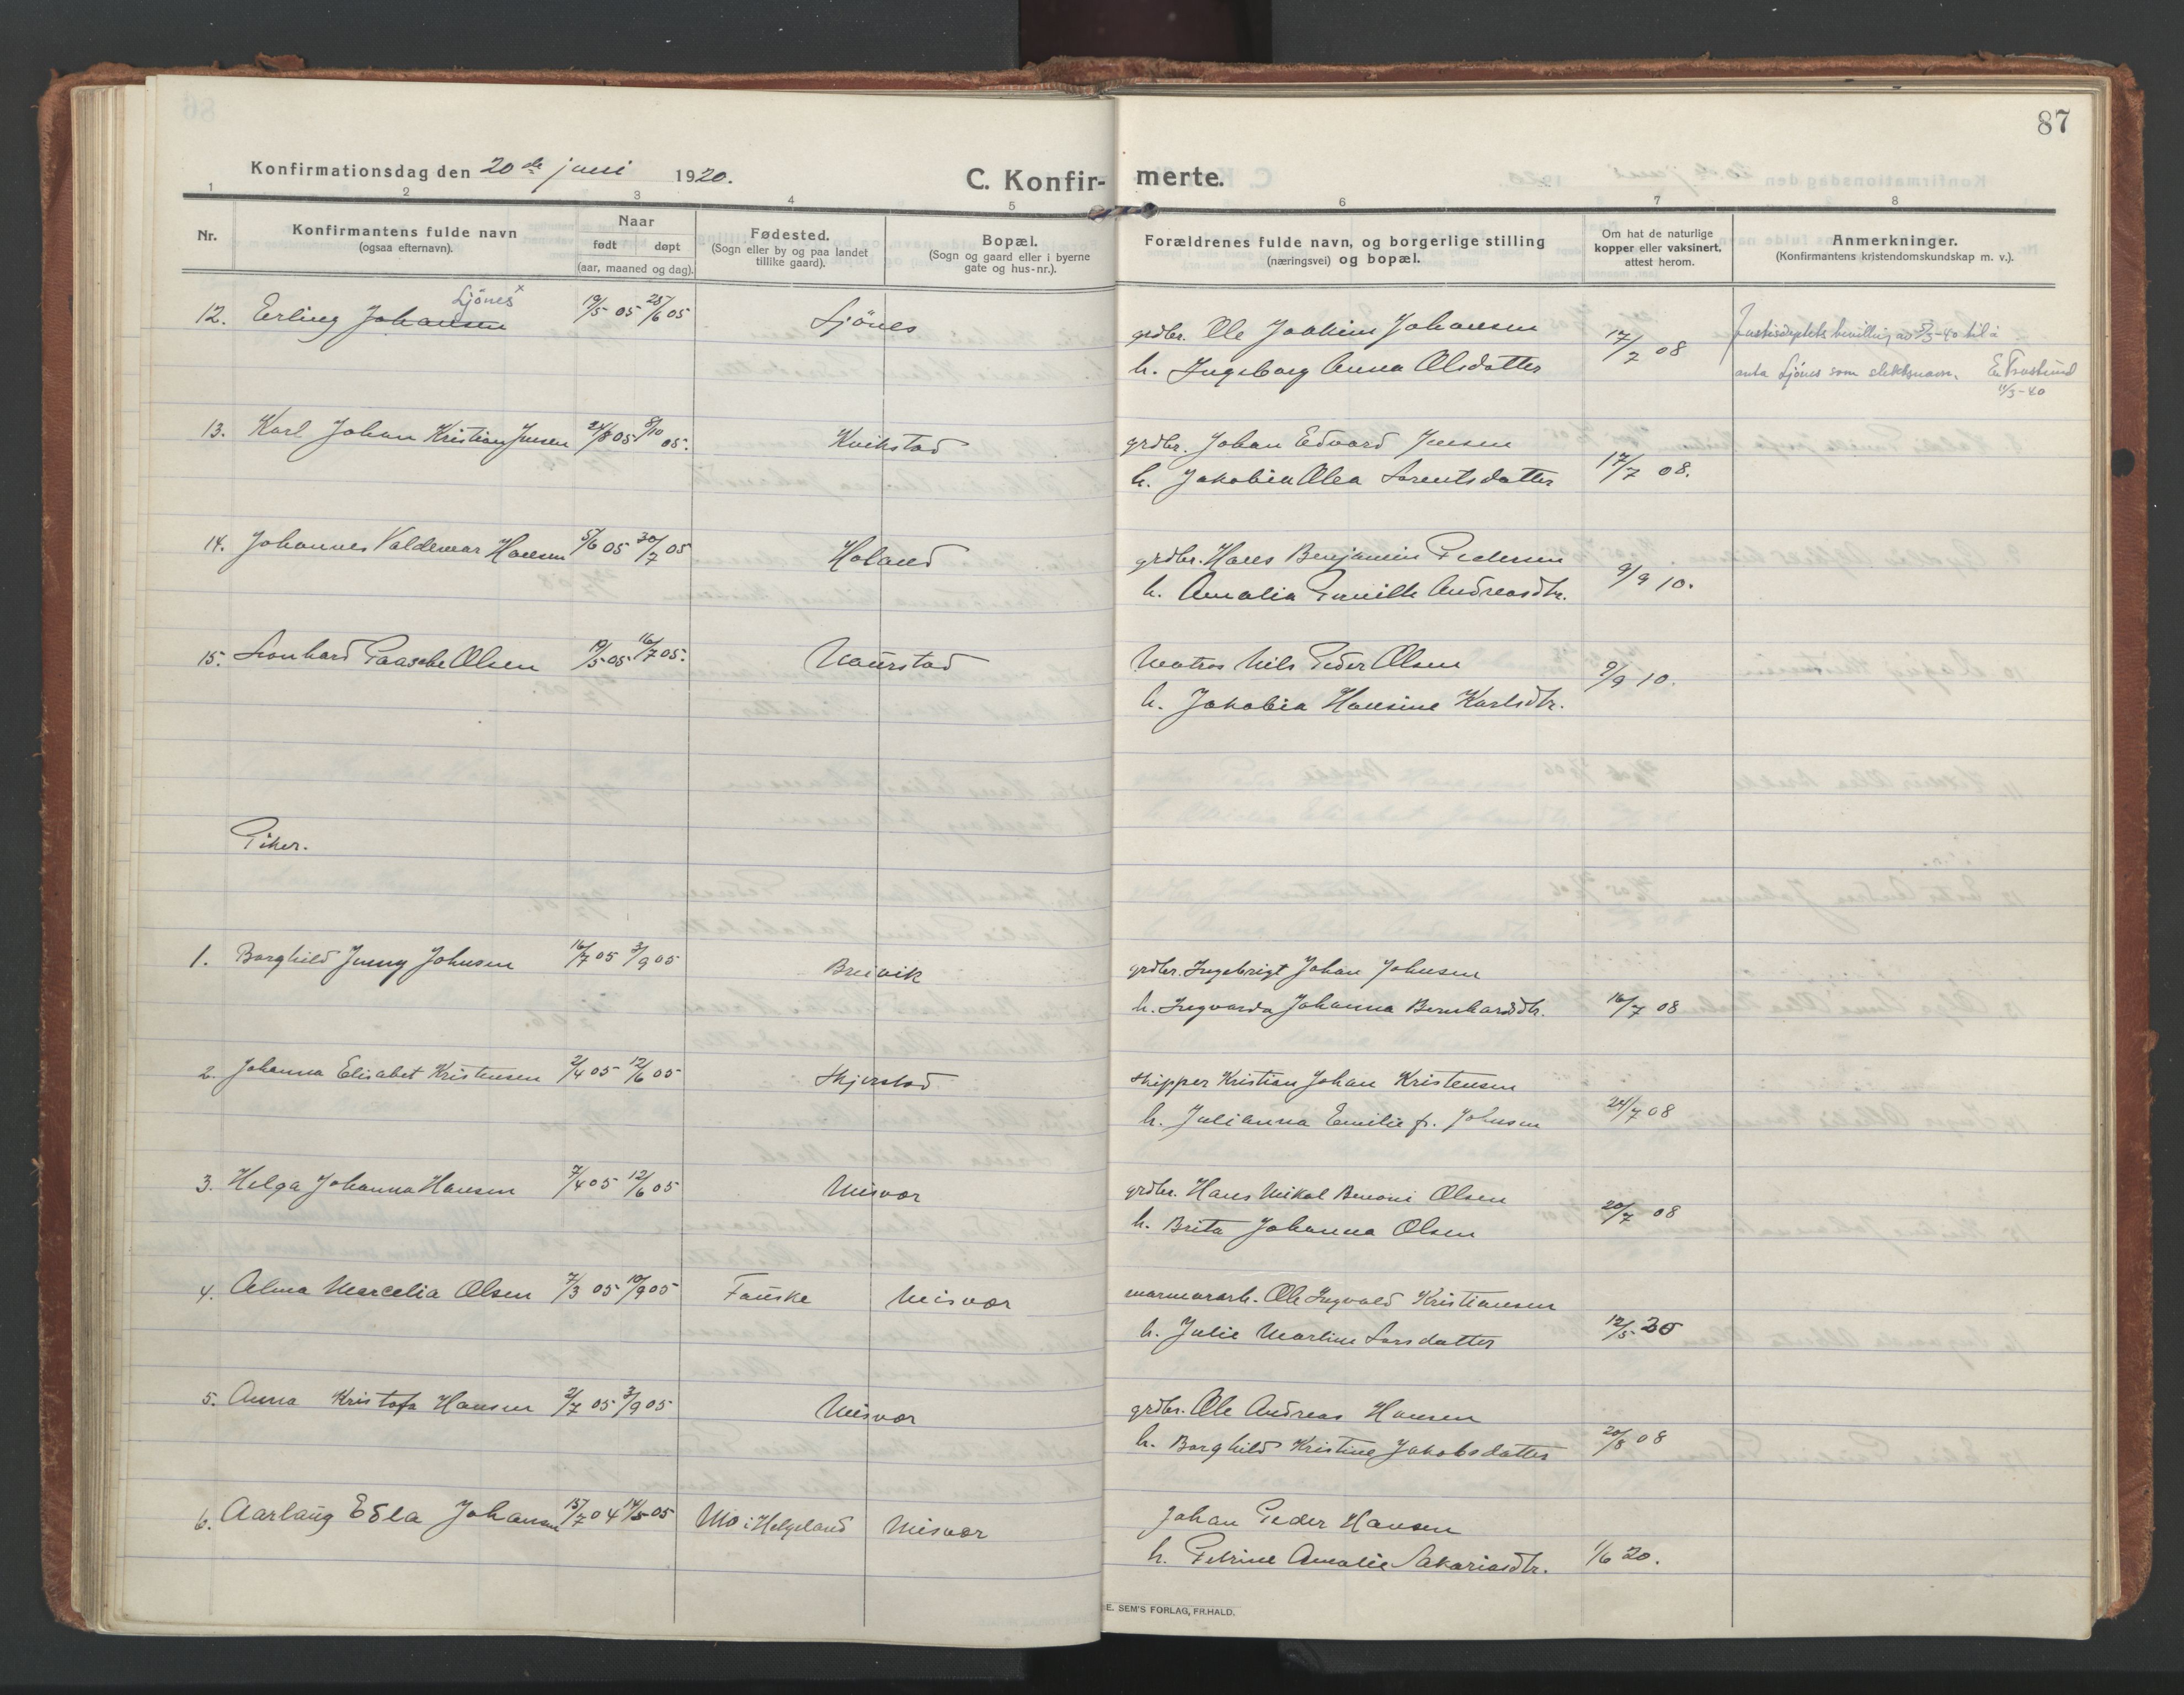 87
Konfirmationsdag den 20de juni 1920.
C. Konfir- merte.
1 2 3 4 5 6 7 8
Nr.
Konfirmantens fulde navn
(ogsaa efternavn).
Naar
født døpt
(aar, maaned og dag).
Fødested.
(Sogn eller by og paa landet
tillike gaard).
Bopæl.
(Sogn og gaard eller i byerne
gate og hus-nr.).
Forældrenes fulde navn, og borgerlige stilling
(næringsvei) og bopæl.
Om hat de naturlige
kopper eller vaksinert,
attest herom.
Anmerkninger.
(Konfirmantens kristendomskundskap m. v.).
Ljönes x
12. Erling Johansen 19/5 05 25/6 05 Ljönes grdbr. Ole Joakim Johansen 17/7 08 bevilling av 5/3-40 til å
h. Ingeborg Anna Olsdatter anta Ljönes som slektsnavn.
11/3-40
13. Karl Johan Kristian Jensen 24/8 05 8/10 05. Kvikstad grdbr. Johan Edvard Jensen
h. Jakobia Olea Lorentsdatter 17/7 08.
14. Johannes Valdemar Hansen 5/6 05 30/7 05 Holand grdbr. Hans Benjamin Pedersen
h. Amalia Pernille Andreasdtr. 9/9 10.
15. Leonhard Paasche Olsen 19/5 05 16/7 05. Naurstad Matros Nils Peder Olsen 9/9 10.
h. Jakobia Hansine Karlsdtr.
Piker.
1. Borghild Jenny Johnsen 16/7 05 3/9 05 Breivik grdbr. Ingebrigt Johan Johnsen
h. Ingvarda Johanna Bernhardsdtr. 16/7 08
2. Johanna Elisabet Kristensen 2/4 05 12/6 05 Skjerstad skipper Kristian Johan Kristensen
h. Julianna Emilie f. Johnsen 24/7 08
3. Helga Johanna Hansen 7/4 05 12/6 05 Misvær grdbr. Hans Mikal Benoni Olsen
h. Brita Johanna Olsen 20/7 08
4. Alma Marcelia Olsen 7/3 05 10/9 05 Fauske Misvær marmorarb. Ole Ingvald Kristiansen
h. Julie Martine Larsdatter 12/5 20
5. Anna Kristofa Hansen 2/7 05 3/9 05 Misvær grdbr. Ole Andreas Hansen
h. Borghild Kristine Jakobsdatter 20/8 08
6. Aarlaug Edla Johansen 15/7 04 14/5 05 Mo i Helgeland Misvær Johan Peder Hansen
h. Petrine Amalie Sakariasdtr. 1/6 20.
E. SEM'S FORLAG, FR.HALD.